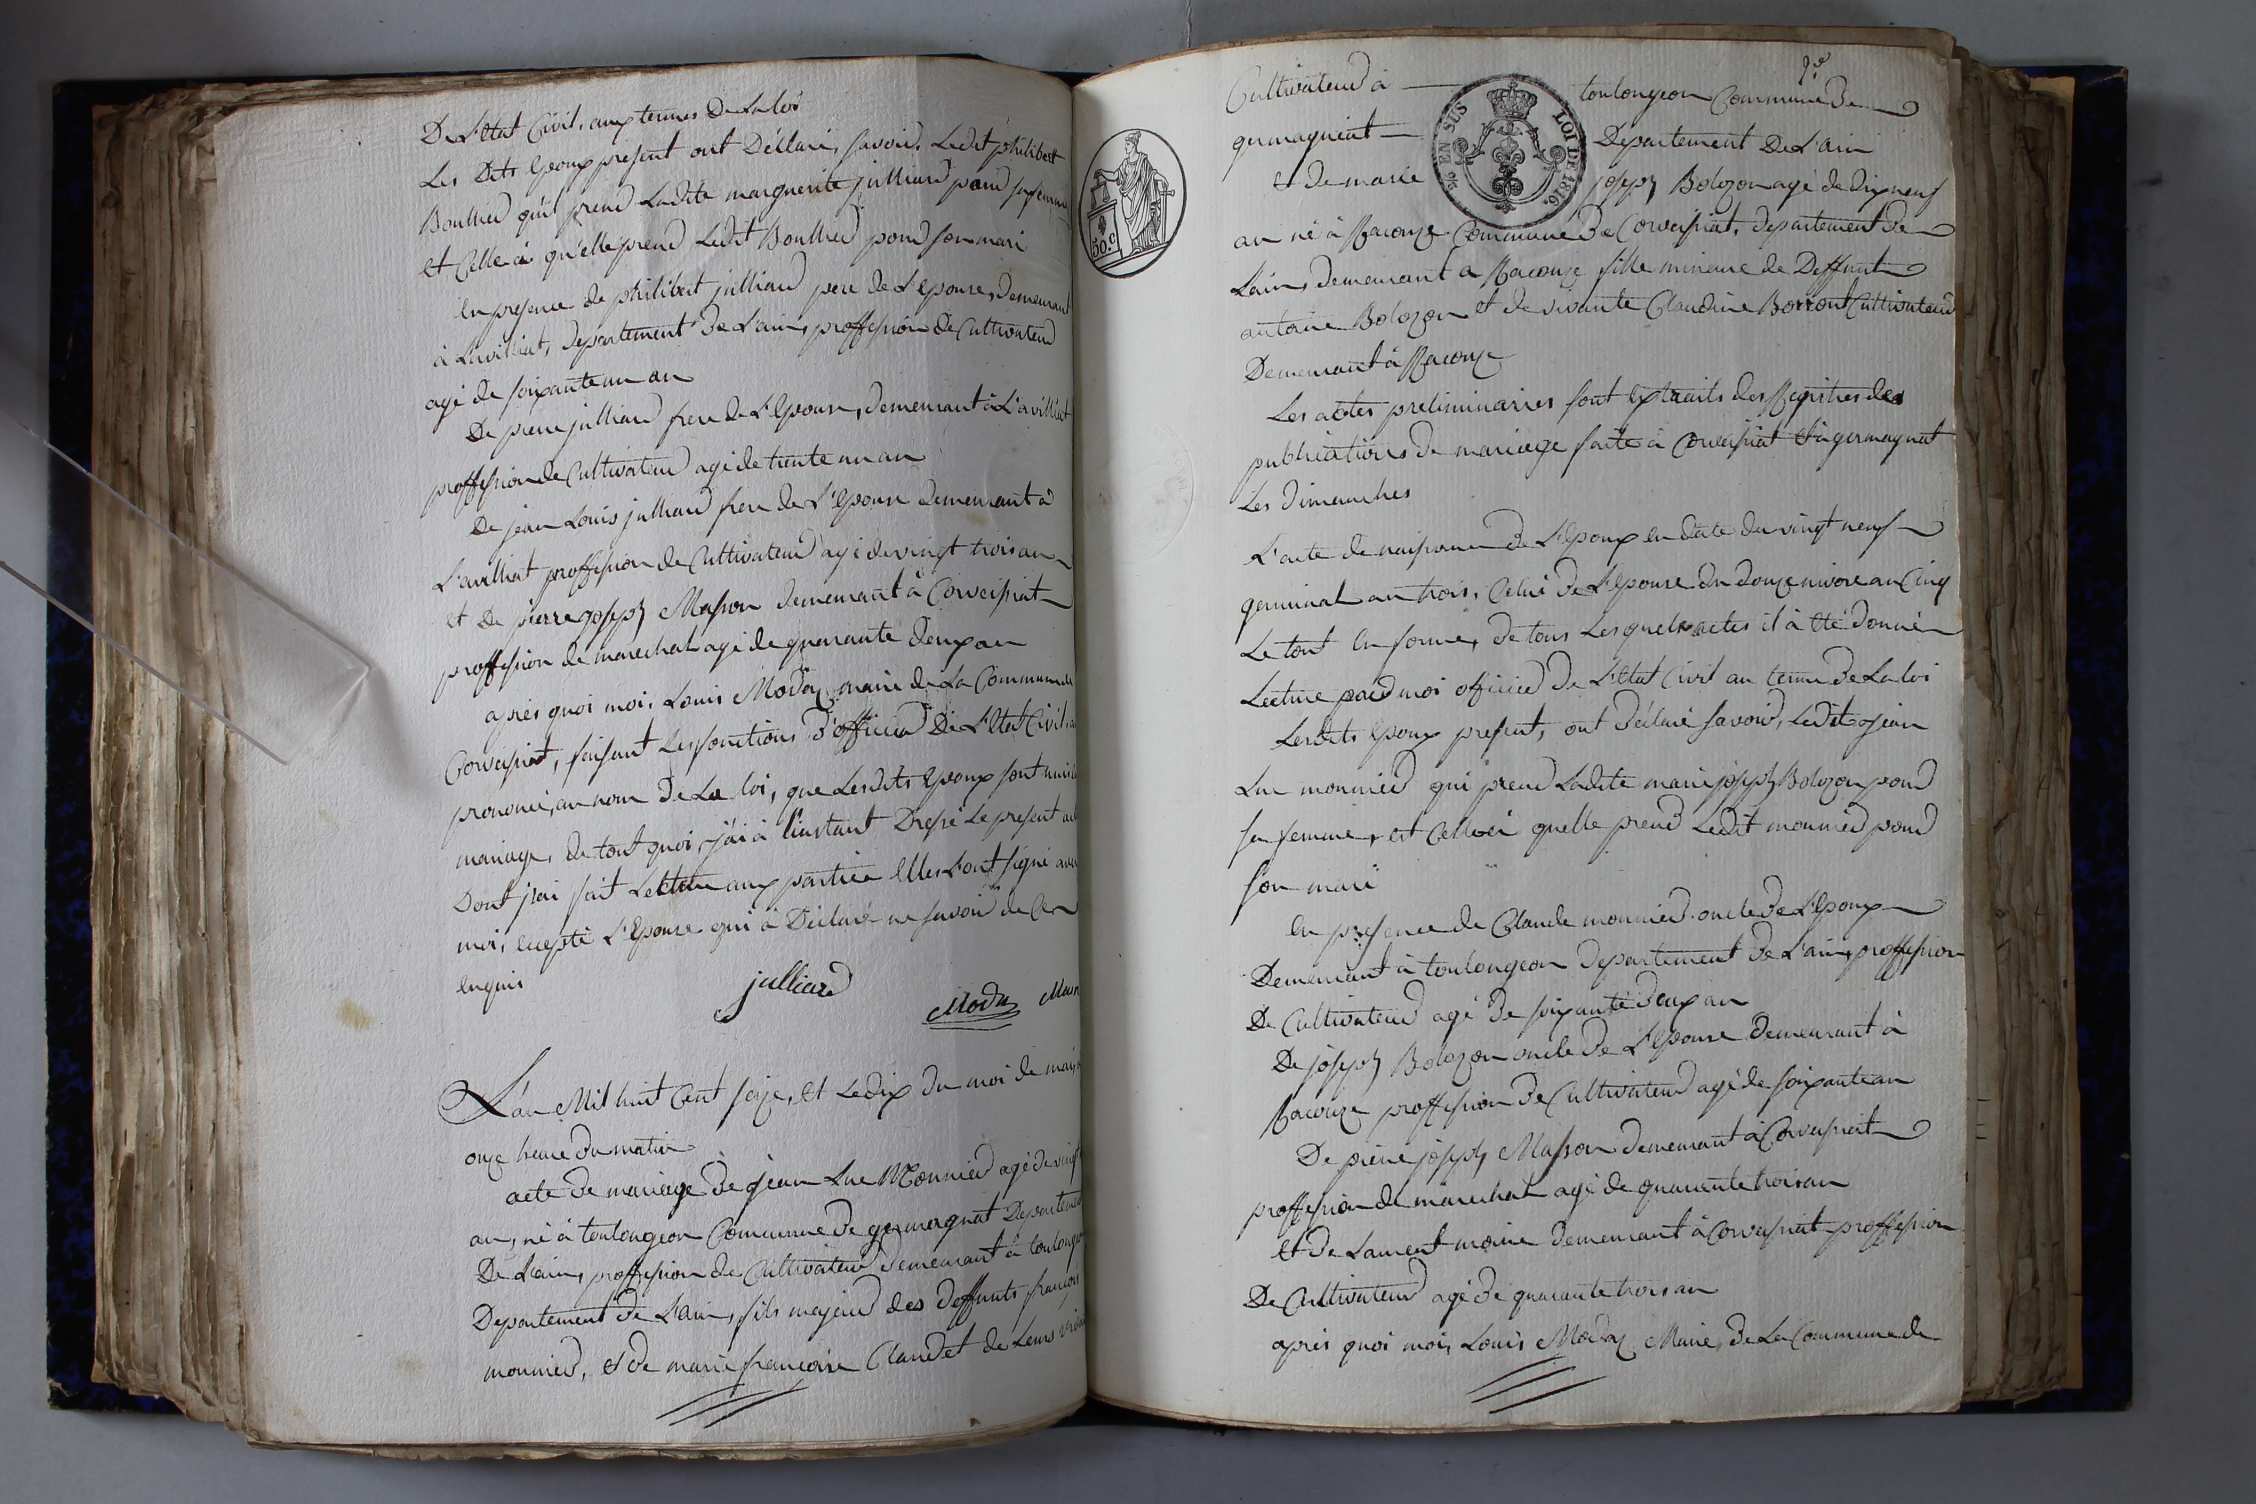 De l'Etat Civil, aux termes De La loi
Les Dits Epoux present ont Déclaré, savoir, Ledit philibert
Boullier qu'il prend Ladite marguerite julliard pour sa femme
et Celle ci qu'elle prend Ledit Boullier pour son mari
En presence de philibert julliard pere de L'Epouse, demeurant
à Lavilliat, departement de L'ain, proffession de Cultivateur
agé de soixante un an
De pierre julliard frere de L'Epouse, demeurant à L'avilliat
proffession de Cultivateur agé de trente un an
De jean Louis julliard frere de L'Epouse demeurant à
L'avilliat proffession de Cultivateur agé de vingt trois an
et De pierre joseph Masson demeurant à Corveissiat
proffession de marechal agé de quarante deux an
après quoi moi, Louis Moday, maire de La Commune de
Corveissiat, faisant Les fonctions d'officier De L'Etat Civil, ai
prononcé, au nom De La loi, que Lesdits Epoux sont unis en
mariage, de tout quoi, j'ai à l'instant Dressé Le present acte
Dont j'ai fait Lecture aux parties Elles L'ont signé avec
moi, excepté L'Epouse qui à Déclaré ne savoir de Ce
enquis
julliard
Moday Maire
L'an Mil huit Cent seize, et Le dix du moi de mai, à
onze heure du matin
acte de mariage de jean Luc Monnier agé de vingt
an, né à toulongeon Commune de germagnat Departement
De L'ain, proffession de Cultivateur demeurant à toulongeon
Departement de L'Ain, fils majeur des deffunts françois
monnier, et de marie françoise Clandet de Leurs vivant
Cultivateur à toulongeon Commune De
germagniat Departement De L'ain
30.c
EN SUS
LOI DE 1816.
et de marie joseph Bolozon agé de dix neuf
an né à Racouze Commune de Corveissiat, departement De
L'ain, demeurant à Racouze fille mineure de Deffunt
antoine Bolozon et de vivante Claudine Borront Cultivateur
Demeurant à Racouze
Les actes preliminaires sont Extraits des Registres des
publications de mariage faite à Corveissiat et à germagnat
Les dimanches
L'acte de naissance de L'Epoux en date du vingt neuf
germinal an trois, Celui de L'Epouse du douze nivose an Cinq
Le tout En forme, de tous Lesquels actes il à été donné
Lecture par moi officier De L'Etat Civil au terme de La loi
Lesdits Epoux present, ont déclaré savoir, Ledit jean
Luc monnier qui prend Ladite marie joseph Bolozon pour
sa femme, et Celle ci quelle prend Ledit monnier pour
son mari
En presence de Claude monnier oncle de L'Epoux
Demeurant à toulongeon departement de L'ain, proffession
De Cultivateur agé de soixante deux an
De joseph Bolozon oncle de L'Epouse demeurant à
Racouze proffession de Cultivateur agé de soixante an
De pierre joseph Masson demeurant à Corveissiat
proffession de marechal agé de quarente trois an
et de Laurent moine demeurant à Corveissiat proffession
De Cultivateur agé de quarante trois an
après quoi moi, Louis Moday Maire, de La Commune de